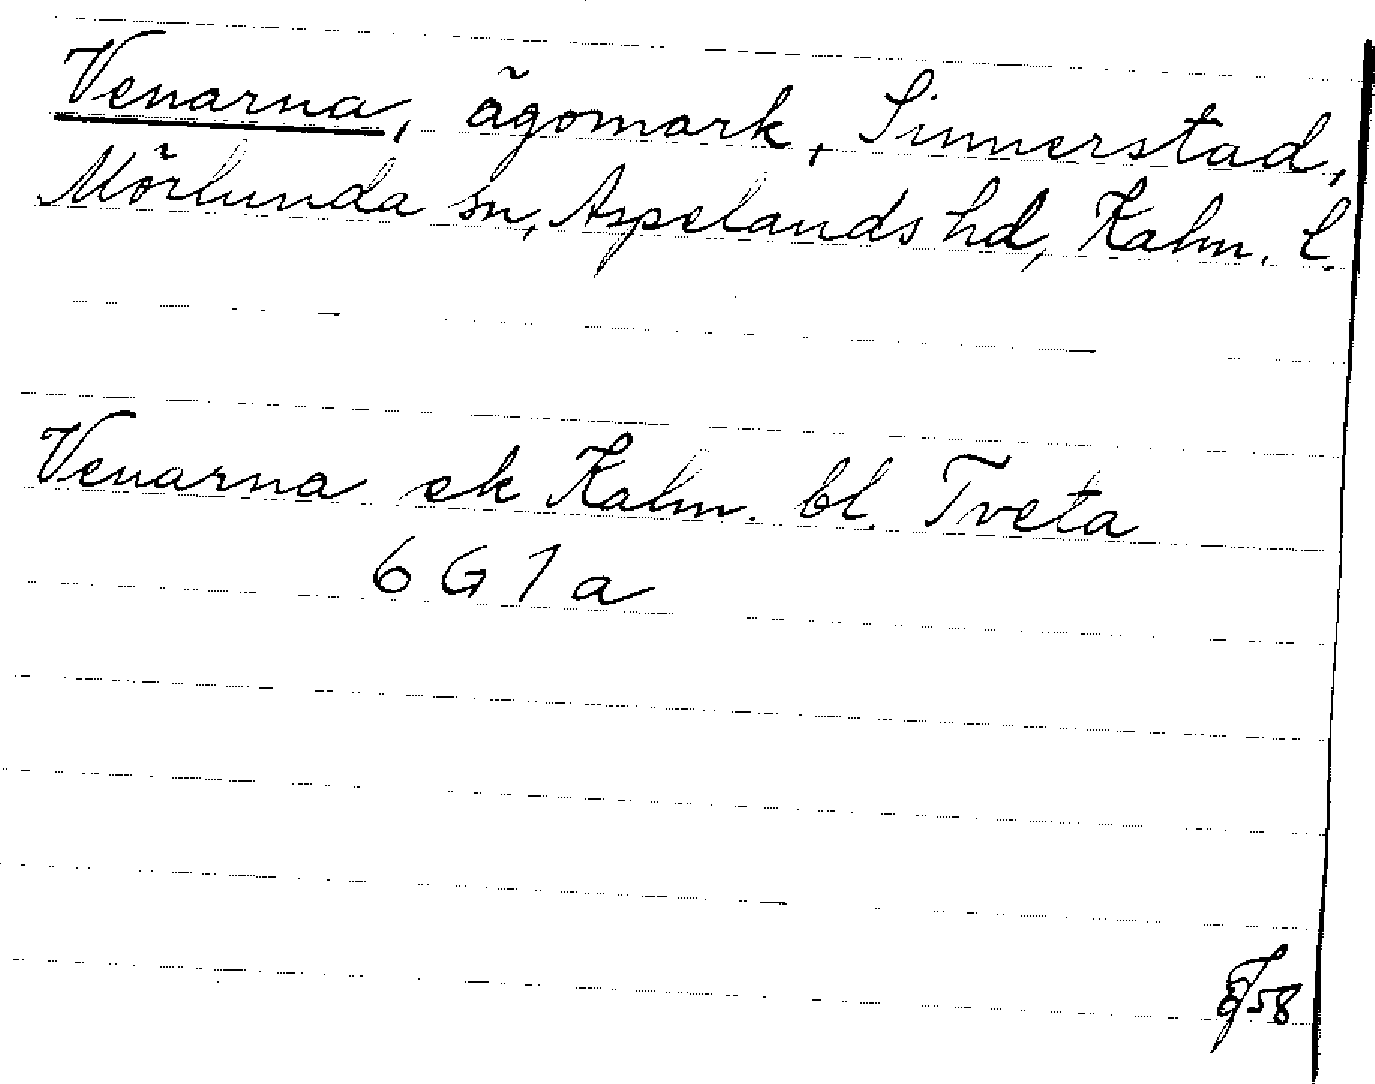 Venarna, ägomark, Sinnerstad,
Mörlunda sn, Aspelands hd, Kalm. l.
Venarna ek Kalm. bl. Tveta
6 G 1 a
58